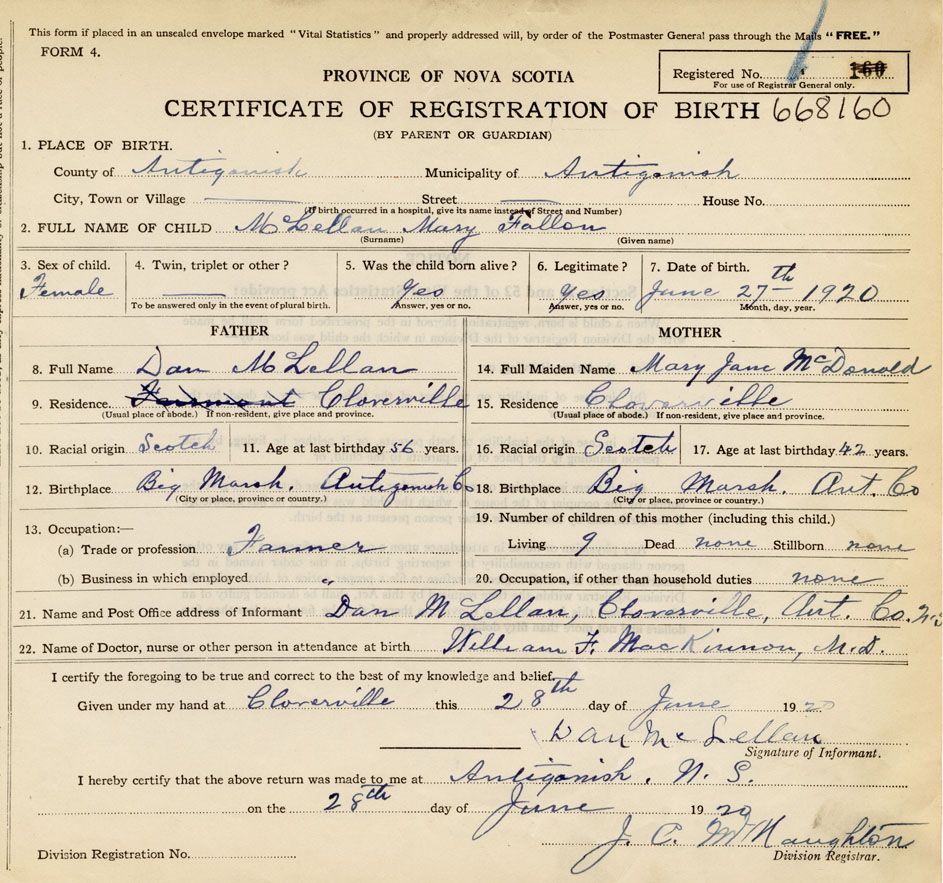 This form if placed in an unsealed envelope marked "Vital Statistics" and properly addressed will, by order of the Postmaster General pass through the Mails "FREE."
FORM 4.
Registered No. 160
For use of Registrar General only.
PROVINCE OF NOVA SCOTIA
CERTIFICATE OF REGISTRATION OF BIRTH 668160
(BY PARENT OR GUARDIAN)
1. PLACE OF BIRTH.
County of Antigonish Municipality of Antigonish
City, Town or Village — Street — House No.
(If birth occurred in a hospital, give its name instead of Street and Number)
2. FULL NAME OF CHILD McLellan Mary Fallon
(Surname) (Given name)
3. Sex of child. 4. Twin, triplet or other? 5. Was the child born alive? 6. Legitimate? 7. Date of birth.
Female — Yes Yes June 27th 1920
To be answered only in the event of plural birth. Answer, yes or no. Answer, yes or no. Month, day, year.
FATHER MOTHER
8. Full Name Dan McLellan 14. Full Maiden Name Mary Jane McDonald
9. Residence. Fairmont Cloverville 15. Residence Cloverville
(Usual place of abode.) If non-resident, give place and province. (Usual place of abode.) If non-resident, give place and province.
10. Racial origin Scotch 11. Age at last birthday 56 years. 16. Racial origin Scotch 17. Age at last birthday 42 years.
12. Birthplace Big Marsh. Antigonish Co 18. Birthplace Big Marsh. Ant. Co
(City or place, province or country.) (City or place, province or country.)
13. Occupation:— 19. Number of children of this mother (including this child.)
(a) Trade or profession Farmer Living 9 Dead none Stillborn none
(b) Business in which employed „ 20. Occupation, if other than household duties none
21. Name and Post Office address of Informant Dan McLellan, Cloverville, Ant. Co. N.S
22. Name of Doctor, nurse or other person in attendance at birth William F. MacKinnon, M.D.
I certify the foregoing to be true and correct to the best of my knowledge and belief.
Given under my hand at Cloverville this 28th day of June 1920
Dan McLellan
Signature of Informant.
I hereby certify that the above return was made to me at Antigonish, N. S.
on the 28th day of June 1920
J. C. McNaughton
Division Registration No. Division Registrar.